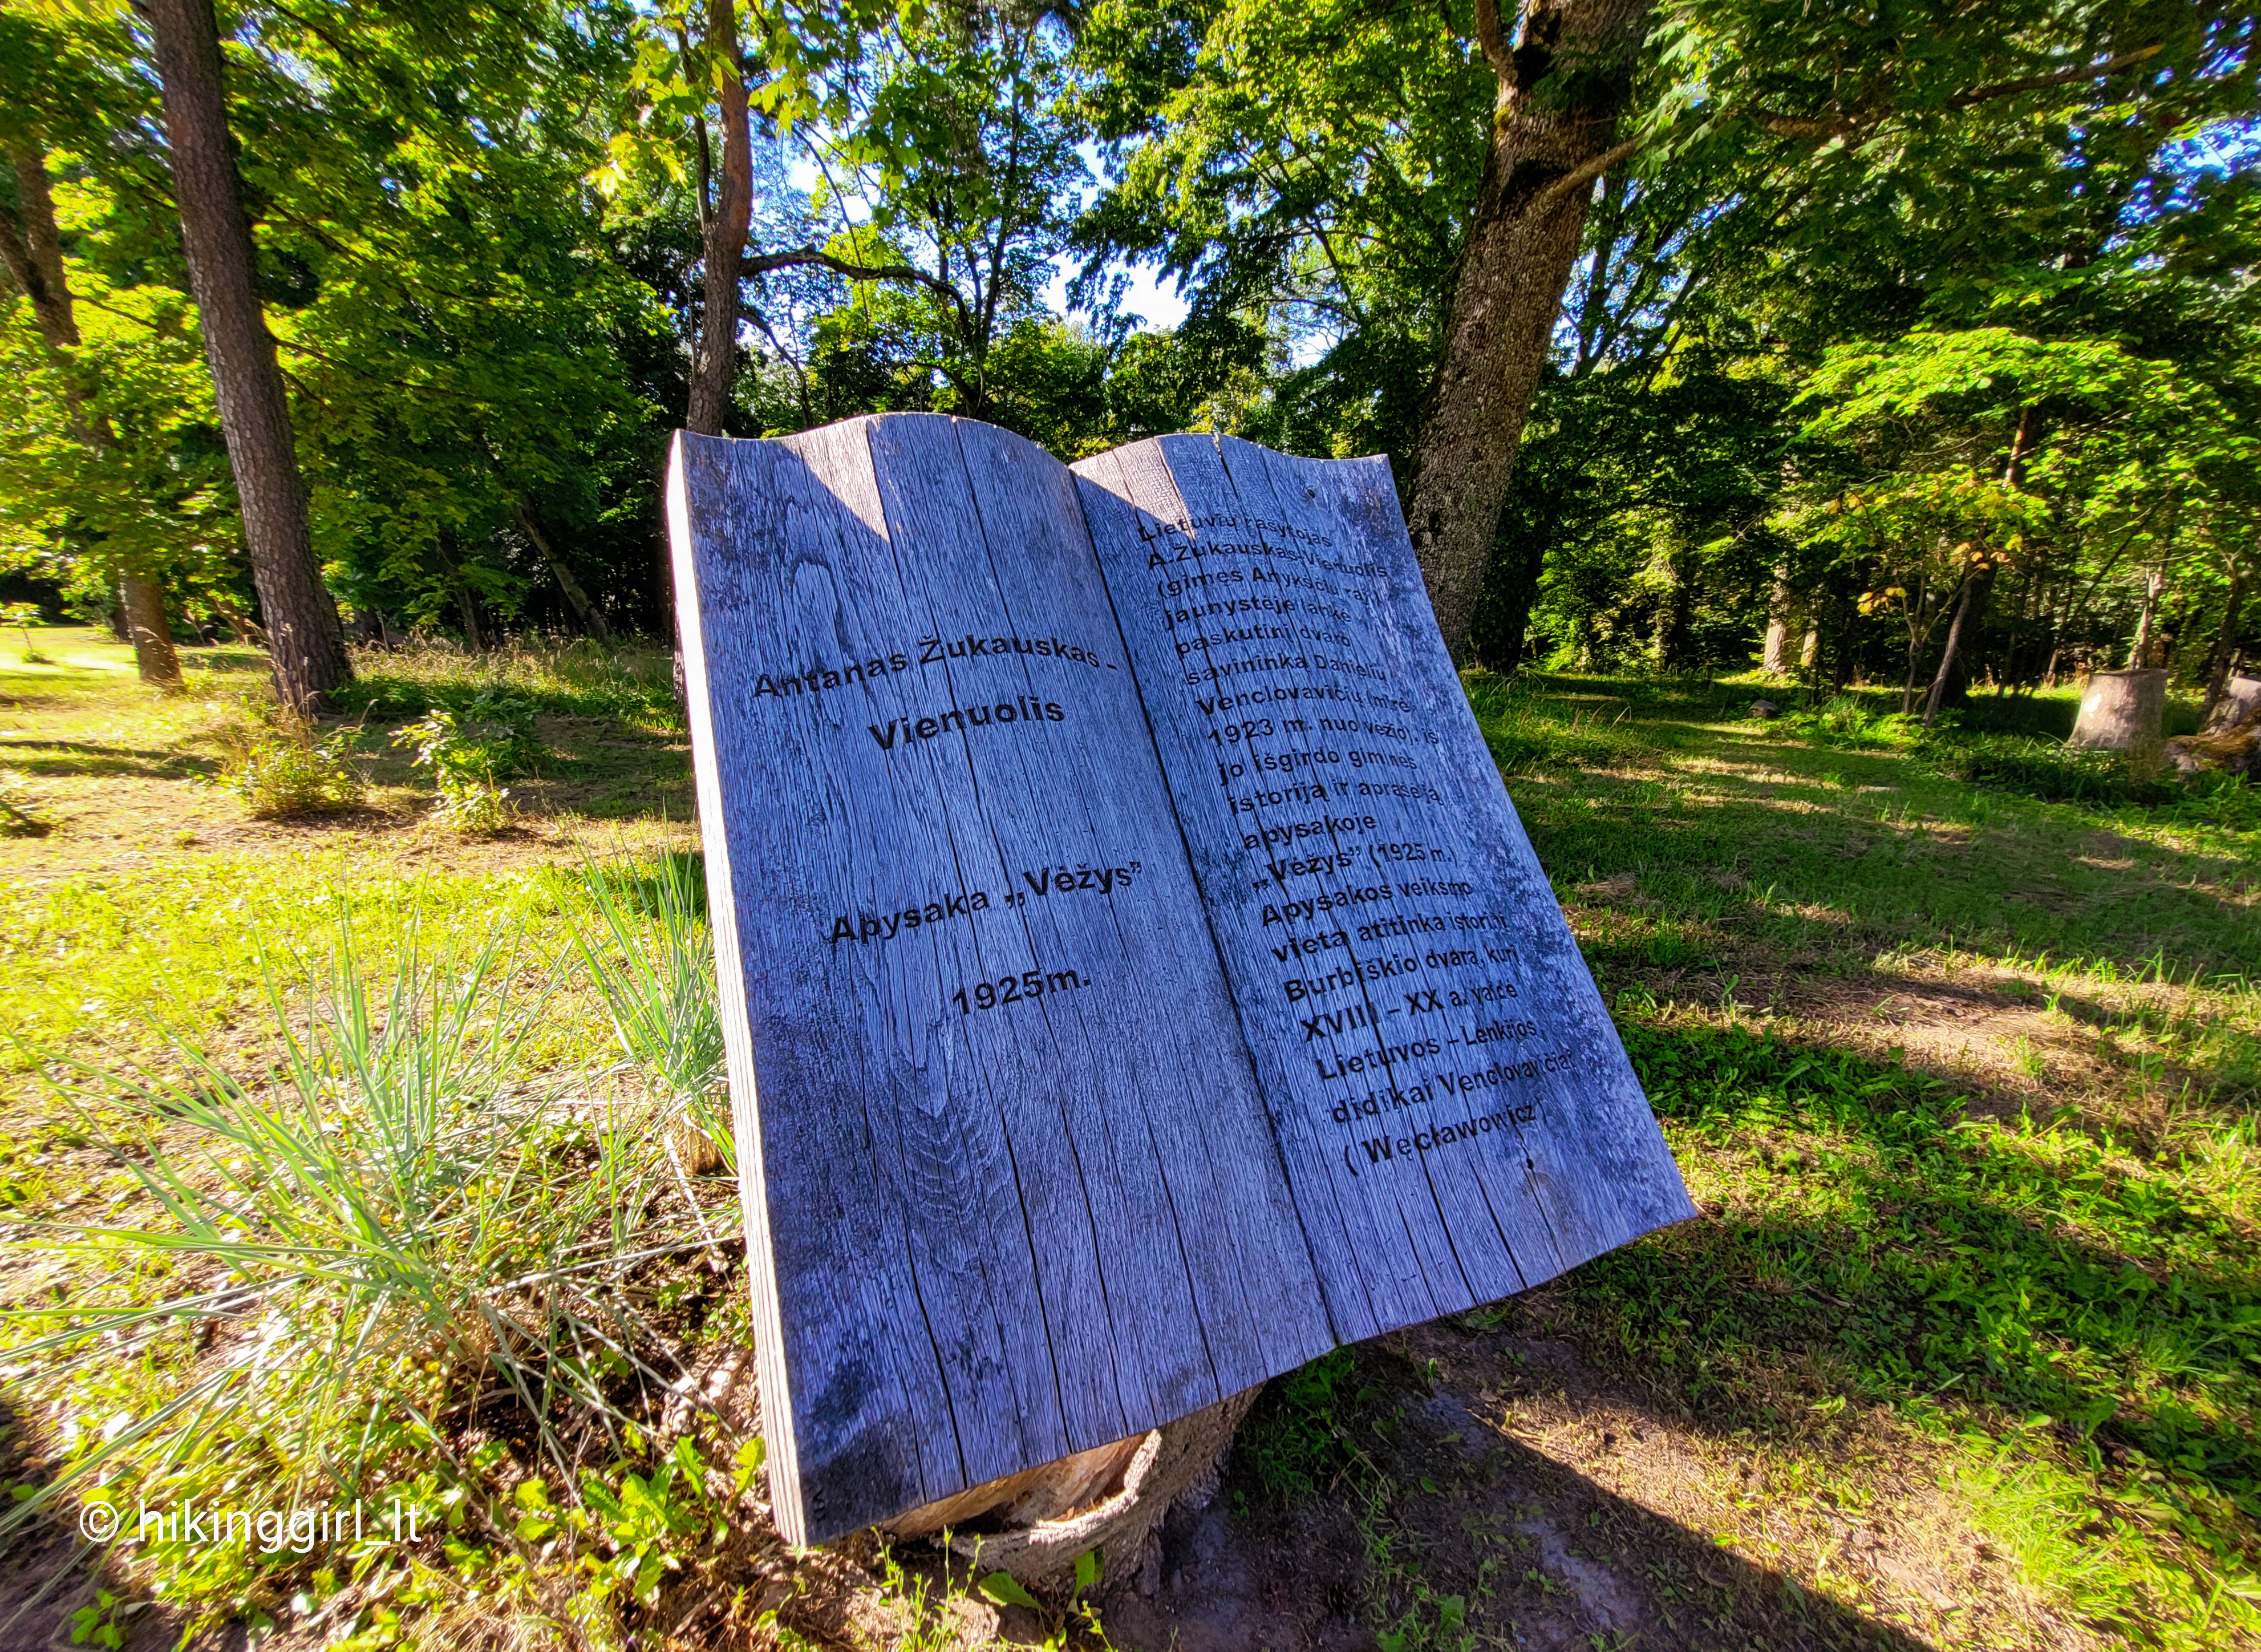 Antanas Žukauskas -
Vienuolis
Apysaka „Vėžys”
1925m.
Lietuvių rašytojas
A.Žukauskas-Vienuolis
(gimęs Anykščių raj.)
jaunystėje lankė
paskutinį dvaro
savininką Danielių
Venclovavičių (mirė
1923 m. nuo vėžio), iš
jo išgirdo giminės
istoriją ir aprašė ją
apysakoje
„Vėžys” (1925 m.)
Apysakos veiksmo
vieta atitinka istorinį
Burbiškio dvarą, kurį
XVIII – XX a. valdė
Lietuvos – Lenkijos
didikai Venclovavičiai
( Węcławowicz)
© hikinggirl_lt